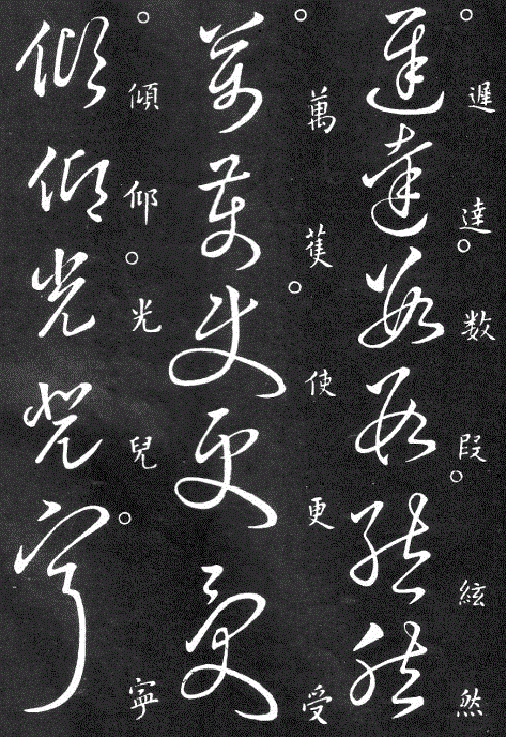 遲達数段絃然
萬蒦使更受
傾仰光兒寧